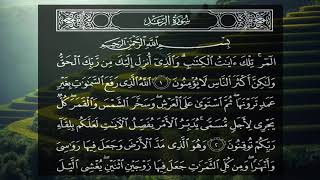 سُورَةُ الرَّعْدِ
بِسْمِ اللَّهِ الرَّحْمَٰنِ الرَّحِيمِ
الٓمٓر ۚ تِلْكَ ءَايَٰتُ الْكِتَٰبِ ۗ وَالَّذِىٓ أُنزِلَ إِلَيْكَ مِن رَّبِّكَ الْحَقُّ
وَلَٰكِنَّ أَكْثَرَ النَّاسِ لَا يُؤْمِنُونَ ١ اللَّهُ الَّذِى رَفَعَ السَّمَٰوَٰتِ بِغَيْرِ
عَمَدٍ تَرَوْنَهَا ۖ ثُمَّ اسْتَوَىٰ عَلَى الْعَرْشِ ۖ وَسَخَّرَ الشَّمْسَ وَالْقَمَرَ ۖ كُلٌّ
يَجْرِى لِأَجَلٍ مُّسَمًّى ۚ يُدَبِّرُ الْأَمْرَ يُفَصِّلُ الْءَايَٰتِ لَعَلَّكُم بِلِقَآءِ
رَبِّكُمْ تُوقِنُونَ ٢ وَهُوَ الَّذِى مَدَّ الْأَرْضَ وَجَعَلَ فِيهَا رَوَٰسِىَ
وَأَنْهَٰرًا ۖ وَمِن كُلِّ الثَّمَرَٰتِ جَعَلَ فِيهَا زَوْجَيْنِ اثْنَيْنِ ۖ يُغْشِى الَّيْلَ